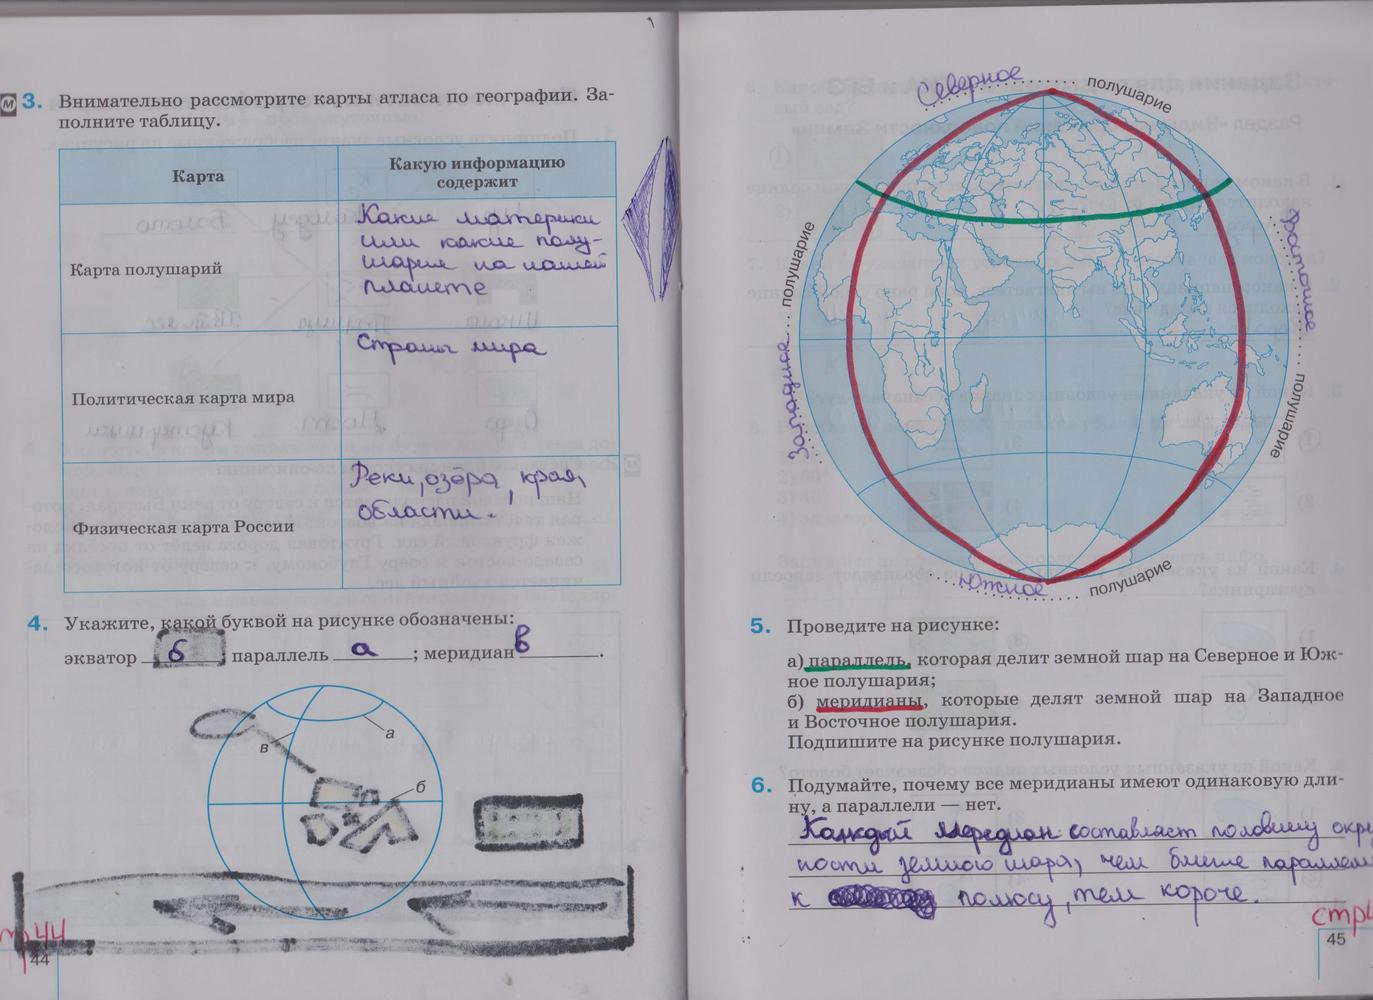 3. Внимательно рассмотрите карты атласа по географии. За-
полните таблицу.
Карта
Какую информацию
содержит
Карта полушарий
Какие материки
или какие полу-
шария на нашей
планете
Политическая карта мира
Страны мира
Физическая карта России
Реки, озёра, края,
области.
4. Укажите, какой буквой на рисунке обозначены:
экватор б; параллель а; меридиан в.
в
а
б
44
Северное полушарие
Западное полушарие
Восточное полушарие
Южное полушарие
5. Проведите на рисунке:
а) параллель, которая делит земной шар на Северное и Юж-
ное полушария;
б) меридианы, которые делят земной шар на Западное
и Восточное полушария.
Подпишите на рисунке полушария.
6. Подумайте, почему все меридианы имеют одинаковую дли-
ну, а параллели — нет.
Каждый меридиан составляет половину окру
ности земного шара, чем ближе параллели
к полюсу, тем короче.
стр
45